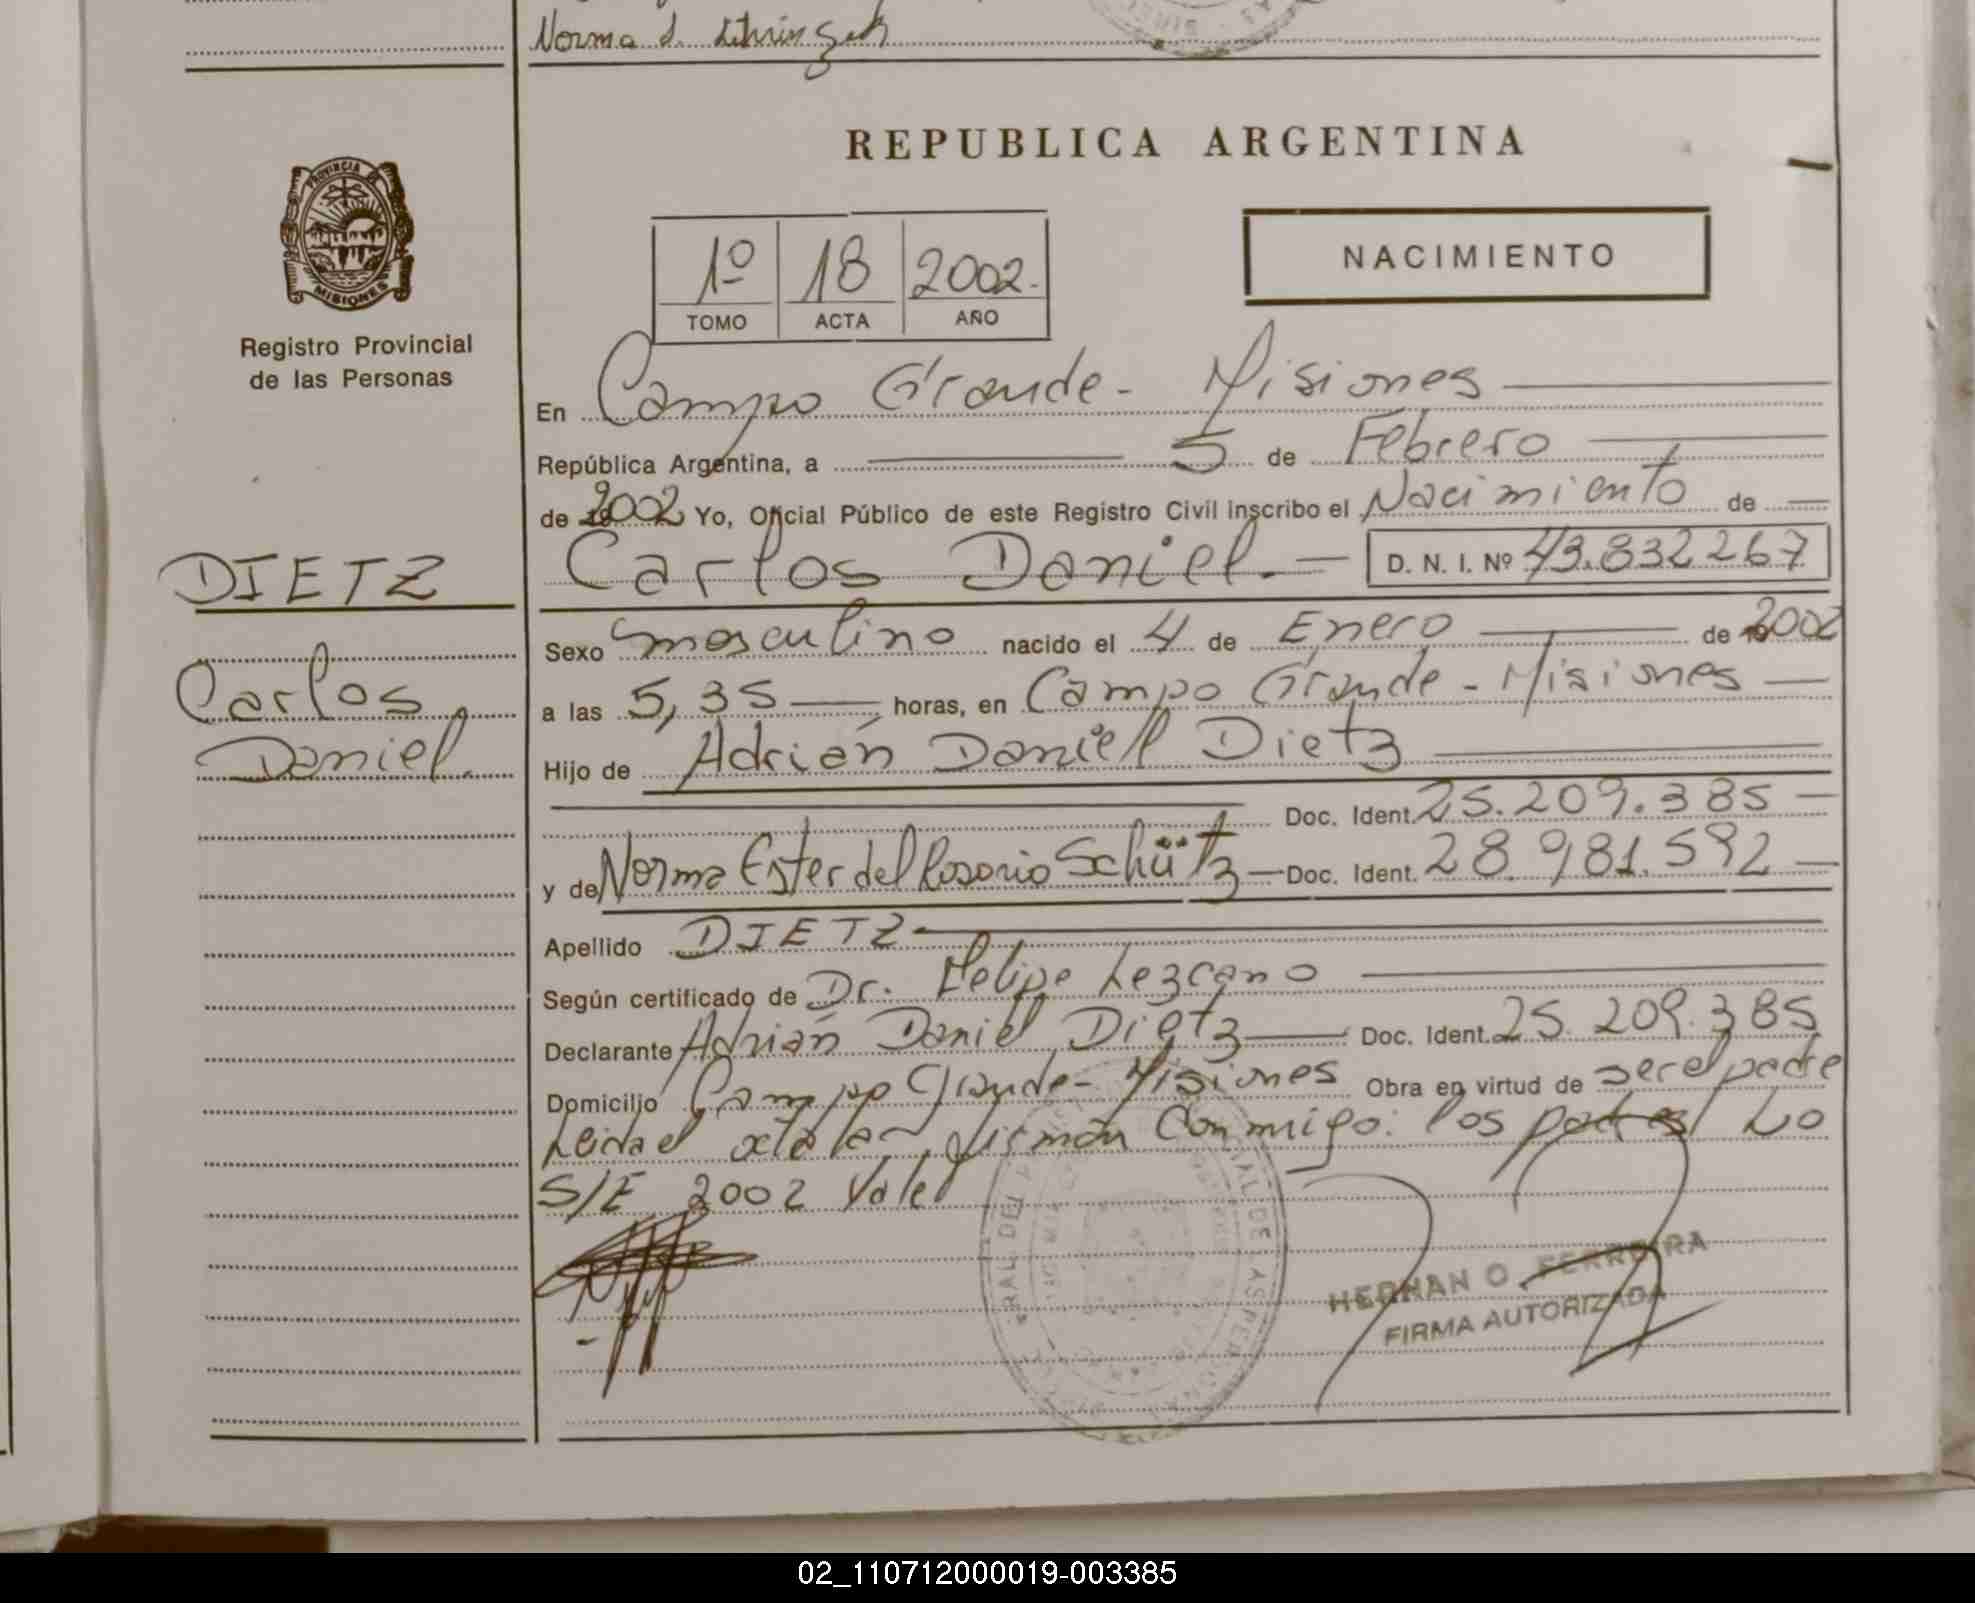 Norma
REPUBLICA ARGENTINA
PROVINCIA DE
MISIONES
Registro Provincial
de las Personas
1º 18 2002.
TOMO ACTA AÑO
NACIMIENTO
En Campo Grande - Misiones
República Argentina, a 5 de Febrero
de 2002 Yo, Oficial Público de este Registro Civil inscribo el Nacimiento de
DIETZ
Carlos Daniel. D. N. I. Nº 43.832267
Sexo masculino nacido el 4 de Enero de 2002
Carlos
a las 5,35 horas, en Campo Grande - Misiones
Daniel.
Hijo de Adrián Daniel Dietz
Doc. Ident. 25.209.385
y de Norma Ester del Rosario Schütz Doc. Ident. 28.981.592
Apellido DIETZ
Según certificado de Dr. Felipe Lezcano
Declarante Adrián Daniel Dietz Doc. Ident. 25.209.385
Domicilio Campo Grande - Misiones Obra en virtud de ser el padre
Leida el acta la firman Conmigo: los padres Lo
S/E 2002 Vale
HERNAN O. FERREIRA
FIRMA AUTORIZADA
02_110712000019-003385